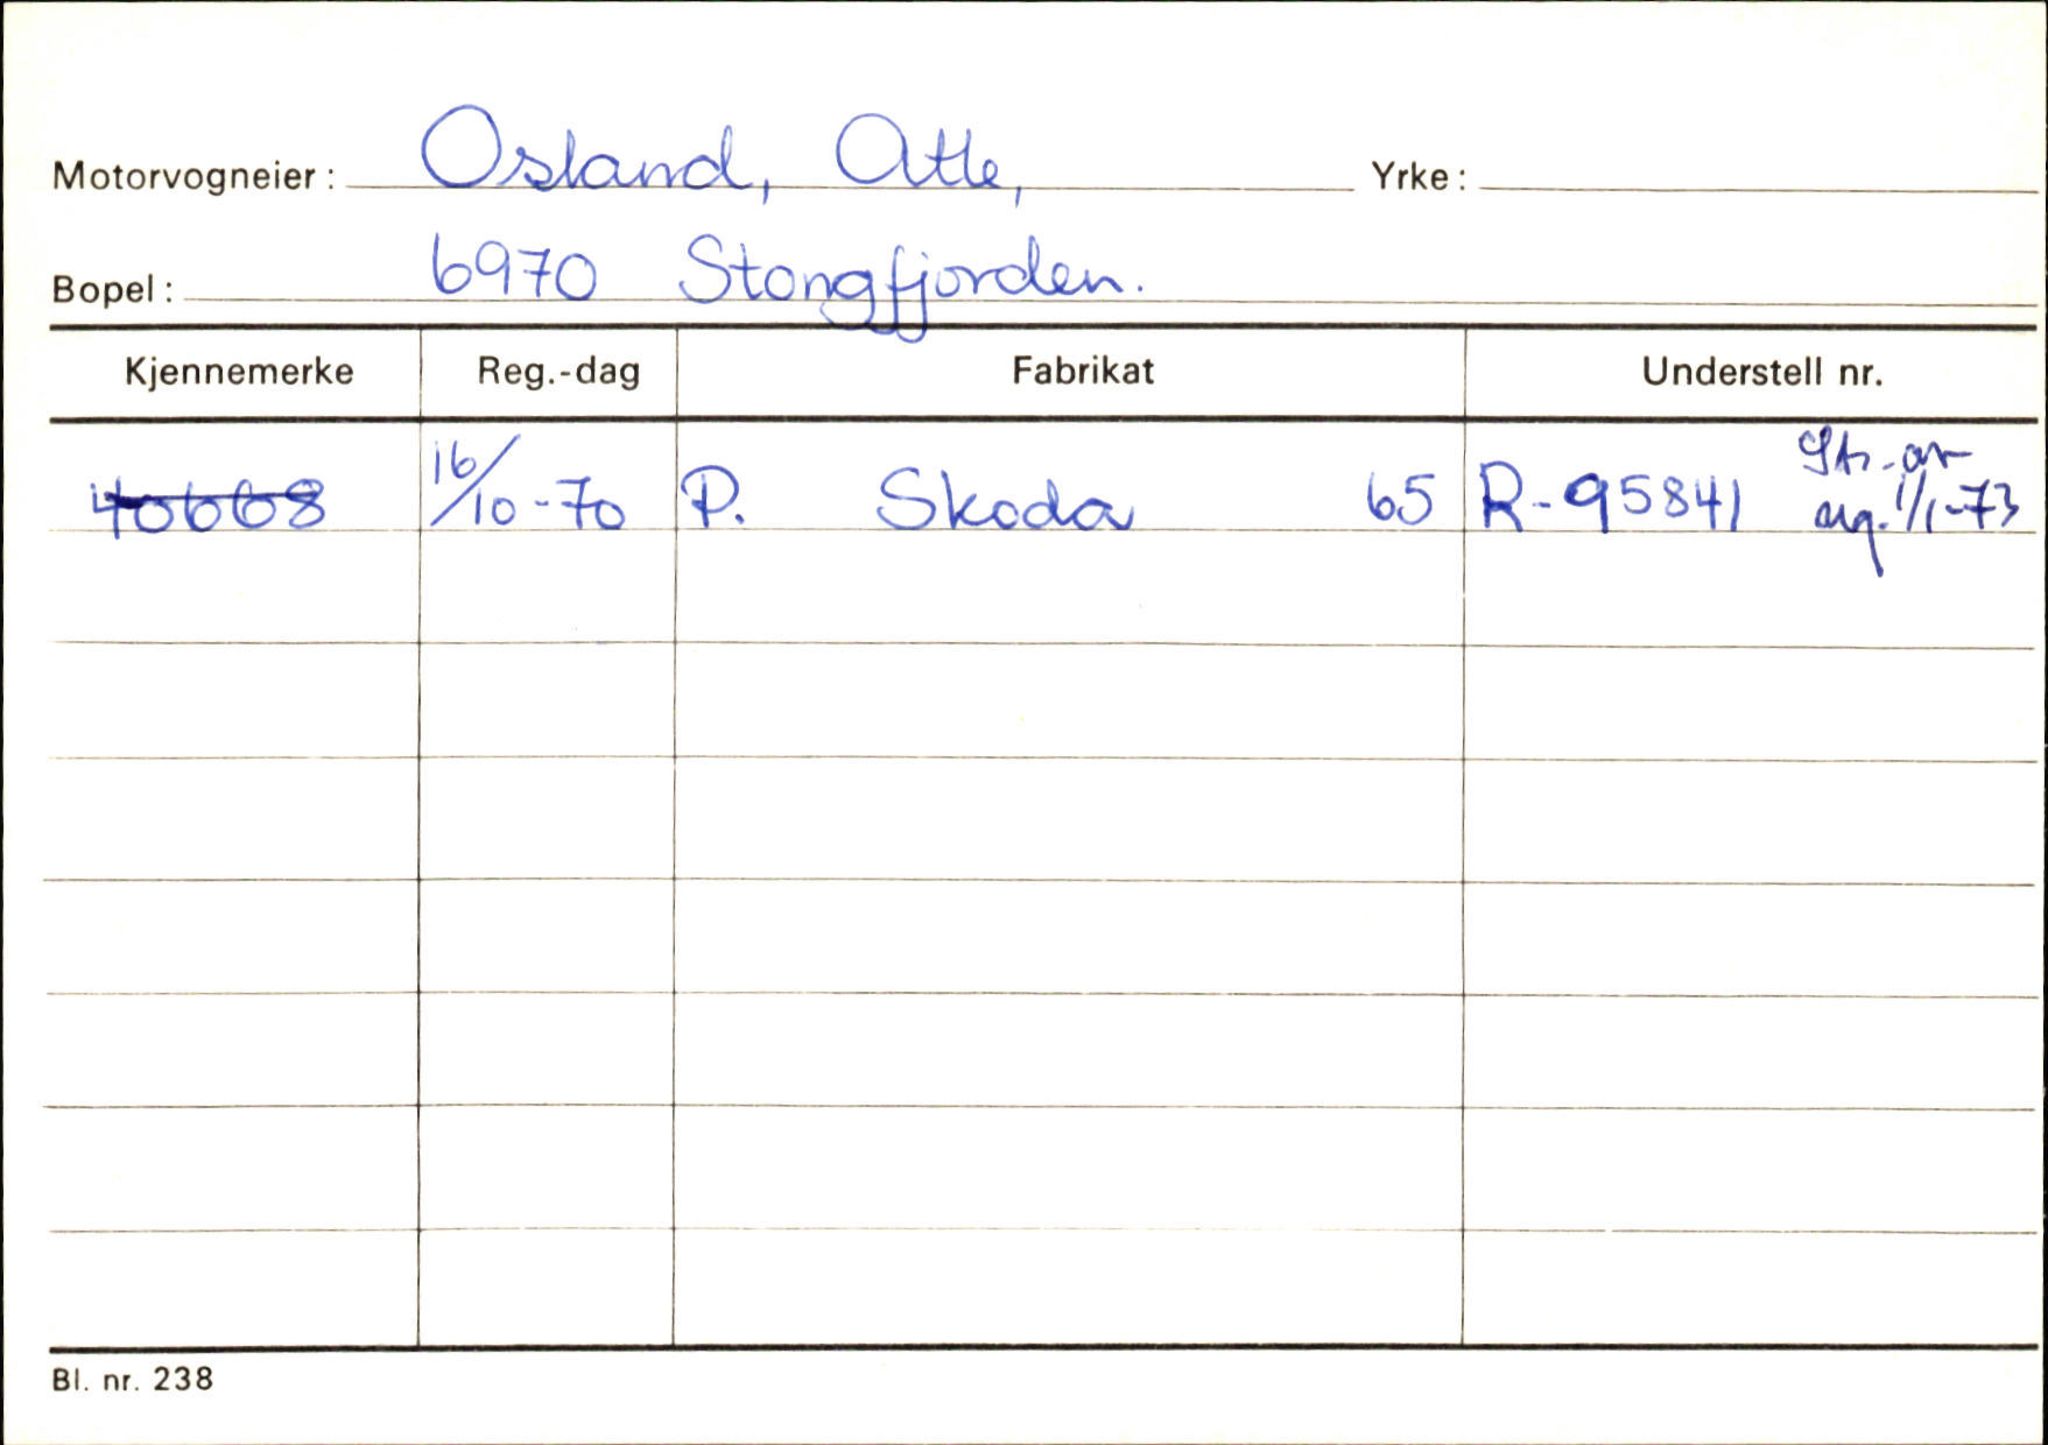 Motorvogneier: Osland, Atle, Yrke:
Bopel: 6970 Stongfjorden.
Kjennemerke Reg.-dag Fabrikat Understell nr.
40668 16/10-70 P. Skoda 65 R-95841 Str. av
reg. 1/1-73
Bl. nr. 238